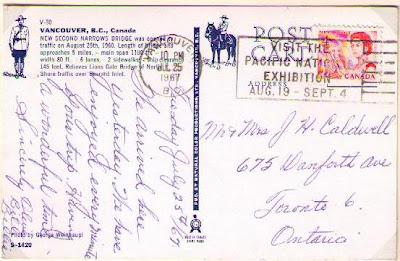 V-10
VANCOUVER, B.C., Canada
NEW SECOND NARROWS BRIDGE was opened
traffic on August 25th, 1960. Length of bridge
approaches 5 miles, - main span 1100
widths 80 ft. 6 lanes. 2 sidewalks - ship clearance
145 feet. Relieves Lions Gate Bridge of North
Shore traffic over Burrard Inlet.
Tuesday July 25th/67
arrived here
Yesterday. We have
enjoyed every minute
a wonderful time
Sincerely
Photo by George Weinhaupl
S-1420
PUB. BY NATURAL COLOR PRODUCTIONS LTD.
VANCOUVER
10 PM
JUL 25
1967
B.C.
POST CARD
ADDRESS
VISIT THE
PACIFIC NATIONAL
EXHIBITION
AUG. 19 - SEPT. 4
CANADA
Mr & Mrs J H Caldwell
675 Danforth Ave
Toronto 6.
Ontario